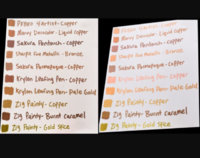 Marvy Decocolor - Liquid Copper
Sakura Pentouch - Copper
Sharpie Fine Metallic - Bronze
Sakura Permapaque - Copper
Krylon Leafing Pen - Copper
Krylon Leafing Pen - Pale Gold
Zig Painty - Copper
Zig Painty - Burnt Caramel
Zig Painty - Gold Spice
Marvy Decocolor - Liquid Copper
Sakura Pentouch - Copper
Sharpie Fine Metallic - Bronze
Sakura Permapaque - Copper
Krylon Leafing Pen - Copper
Krylon Leafing Pen - Pale Gold
Zig Painty - Copper
Zig Painty - Burnt Caramel
Zig Painty - Gold Spice